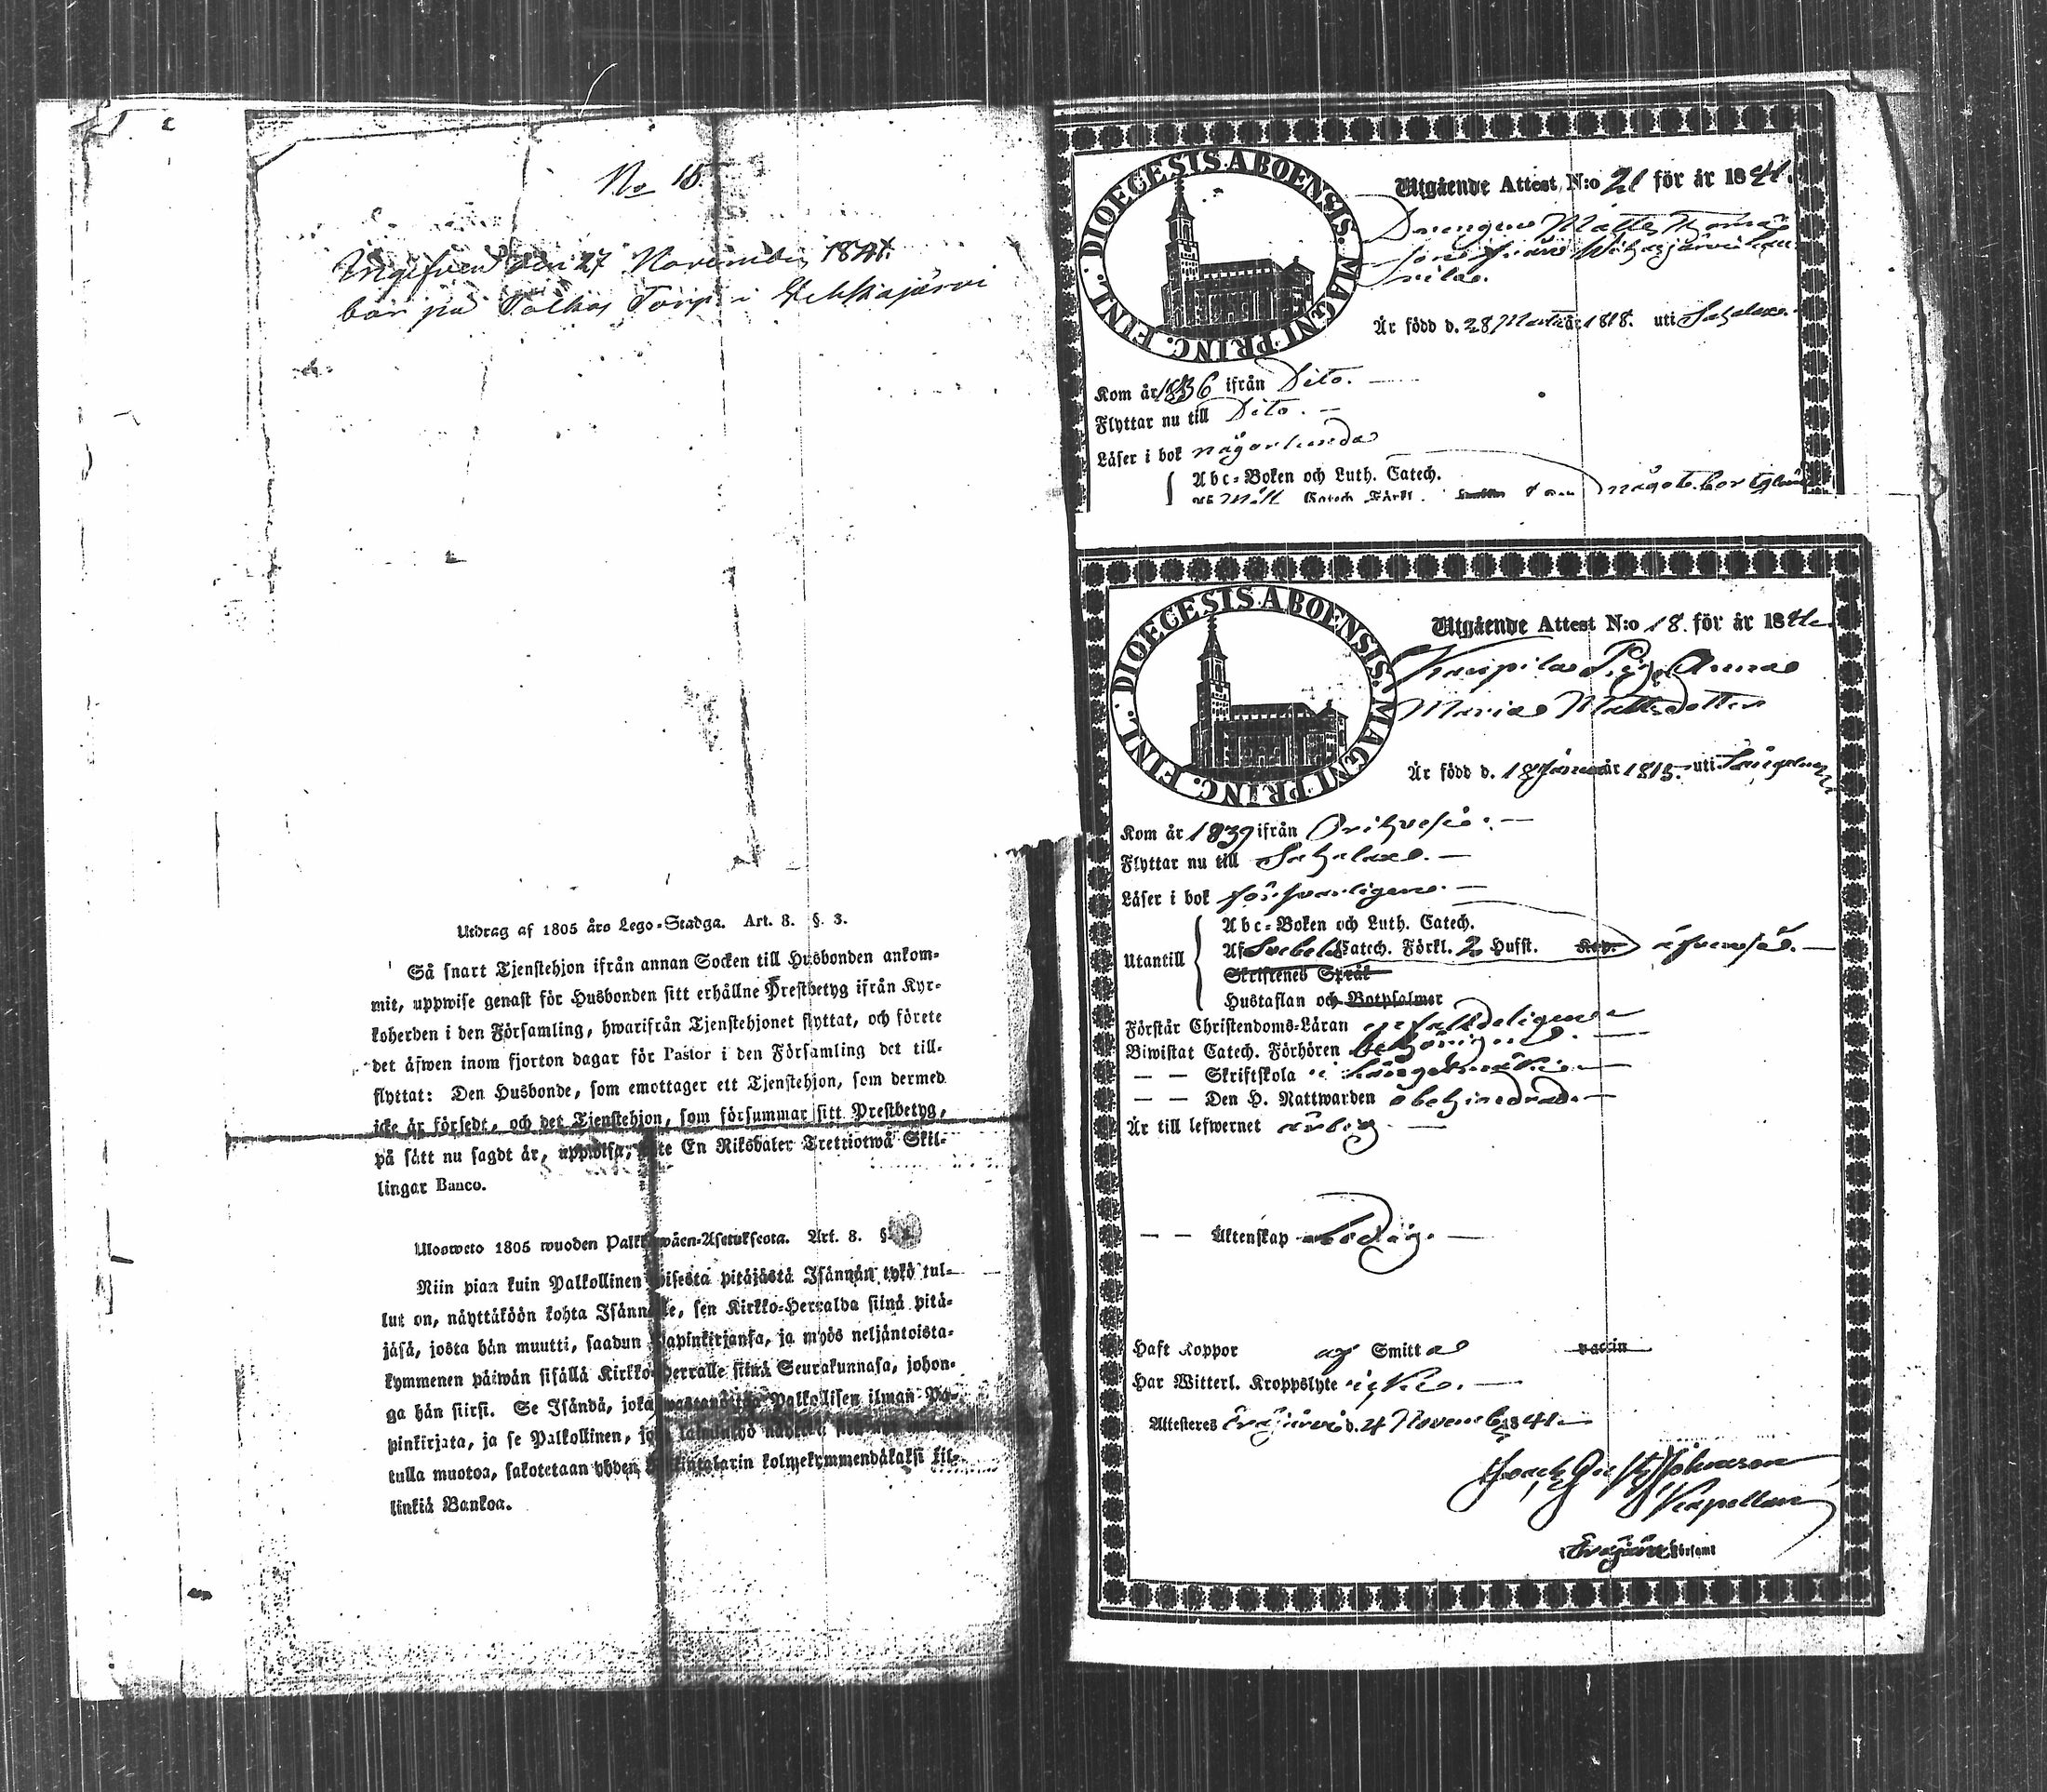 No 15.
Ingifven den 27 November 1841.
bör på Torp i
Utdrag af 1805 års Lego-Stadga. Art. 8. §. 3.
Så snart Tjenstehjon ifrån annan Socken till Husbonden ankom-
mit, uppwise genast för Husbonden sitt erhållne Prestbetyg ifrån Kyr-
koherden i den Församling, hwarifrån Tjenstehjonet flyttat, och förete
det äfwen inom fjorton dagar för Pastor i den Församling det till-
flyttat: Den Husbonde, som emottager ett Tjenstehjon, som dermed
icke är försedt, och det Tjenstehjon, som försummar sitt Prestbetyg,
på sätt nu sagdt är, uppwisa, En Riksdaler Trettiotwå Skil-
lingar Banco.
Ulosweto 1805 wuoden Art. 8. §.
Niin pian kuin Palkollinen toisesta pitäjästä Isännän tykö tul-
lut on, näyttäköön kohta Isännälle, sen Kirkko-Herralda siinä pitä-
jäsä, josta hän muutti, saadun Papinkirjansa, ja myös neljäntoista-
kymmenen päiwän sisällä Kirkko-Herralle siinä Seurakunnasa, johon-
ga hän siirsi. Se Isändä, joka Palkollisen ilman Pa-
pinkirjata, ja se Palkollinen,
tulla muotoa, sakotetaan yhden kolmekymmendäkaksi kil-
linkiä Bankoa.
DIOECESIS ABOENSIS. MAGNI PRINC. FINL.
Utgående Attest N:o 21 för år 1841.
Drengen Matts Thomas
son från
Är född d. 28 Martii år 1818. uti Sahalax.
Kom år 1836 ifrån Dito.
Flyttar nu till Dito.
Läser i bok någorlunda
Abc-Boken och Luth. Catech.
Catech. Förkl. något
DIOECESIS ABOENSIS. MAGNI PRINC. FINL.
Utgående Attest N:o 18. för år 1841.
Pig. Anna
Maria Mattsdotter
Är född d. 18 Januari år 1815. uti
Kom år 1839 ifrån Orihvesi.
Flyttar nu till Sahalax.
Läser i bok försvarligen.
Utantill
Abc-Boken och Luth. Catech.
Af Svebel. Catech. Förkl. 2 Hufst. Kap. äfvenså.
Skriftenes Språk
Hustaflan och Botpsalmer
Förstår Christendoms-Läran
Biwistat Catech. Förhören behörigen.
— — Skriftskola i
— — Den H. Nattwarden obehindrad.
Är till lefwernet ärlig.
— — Äktenskap ledig.
Haft Koppor af Smitta vaccin
Har Witterl. Kroppslyte icke.
Attesteras Eräjärvi d. 4 November 1841.
Kapellan
i Eräjärvi Församl